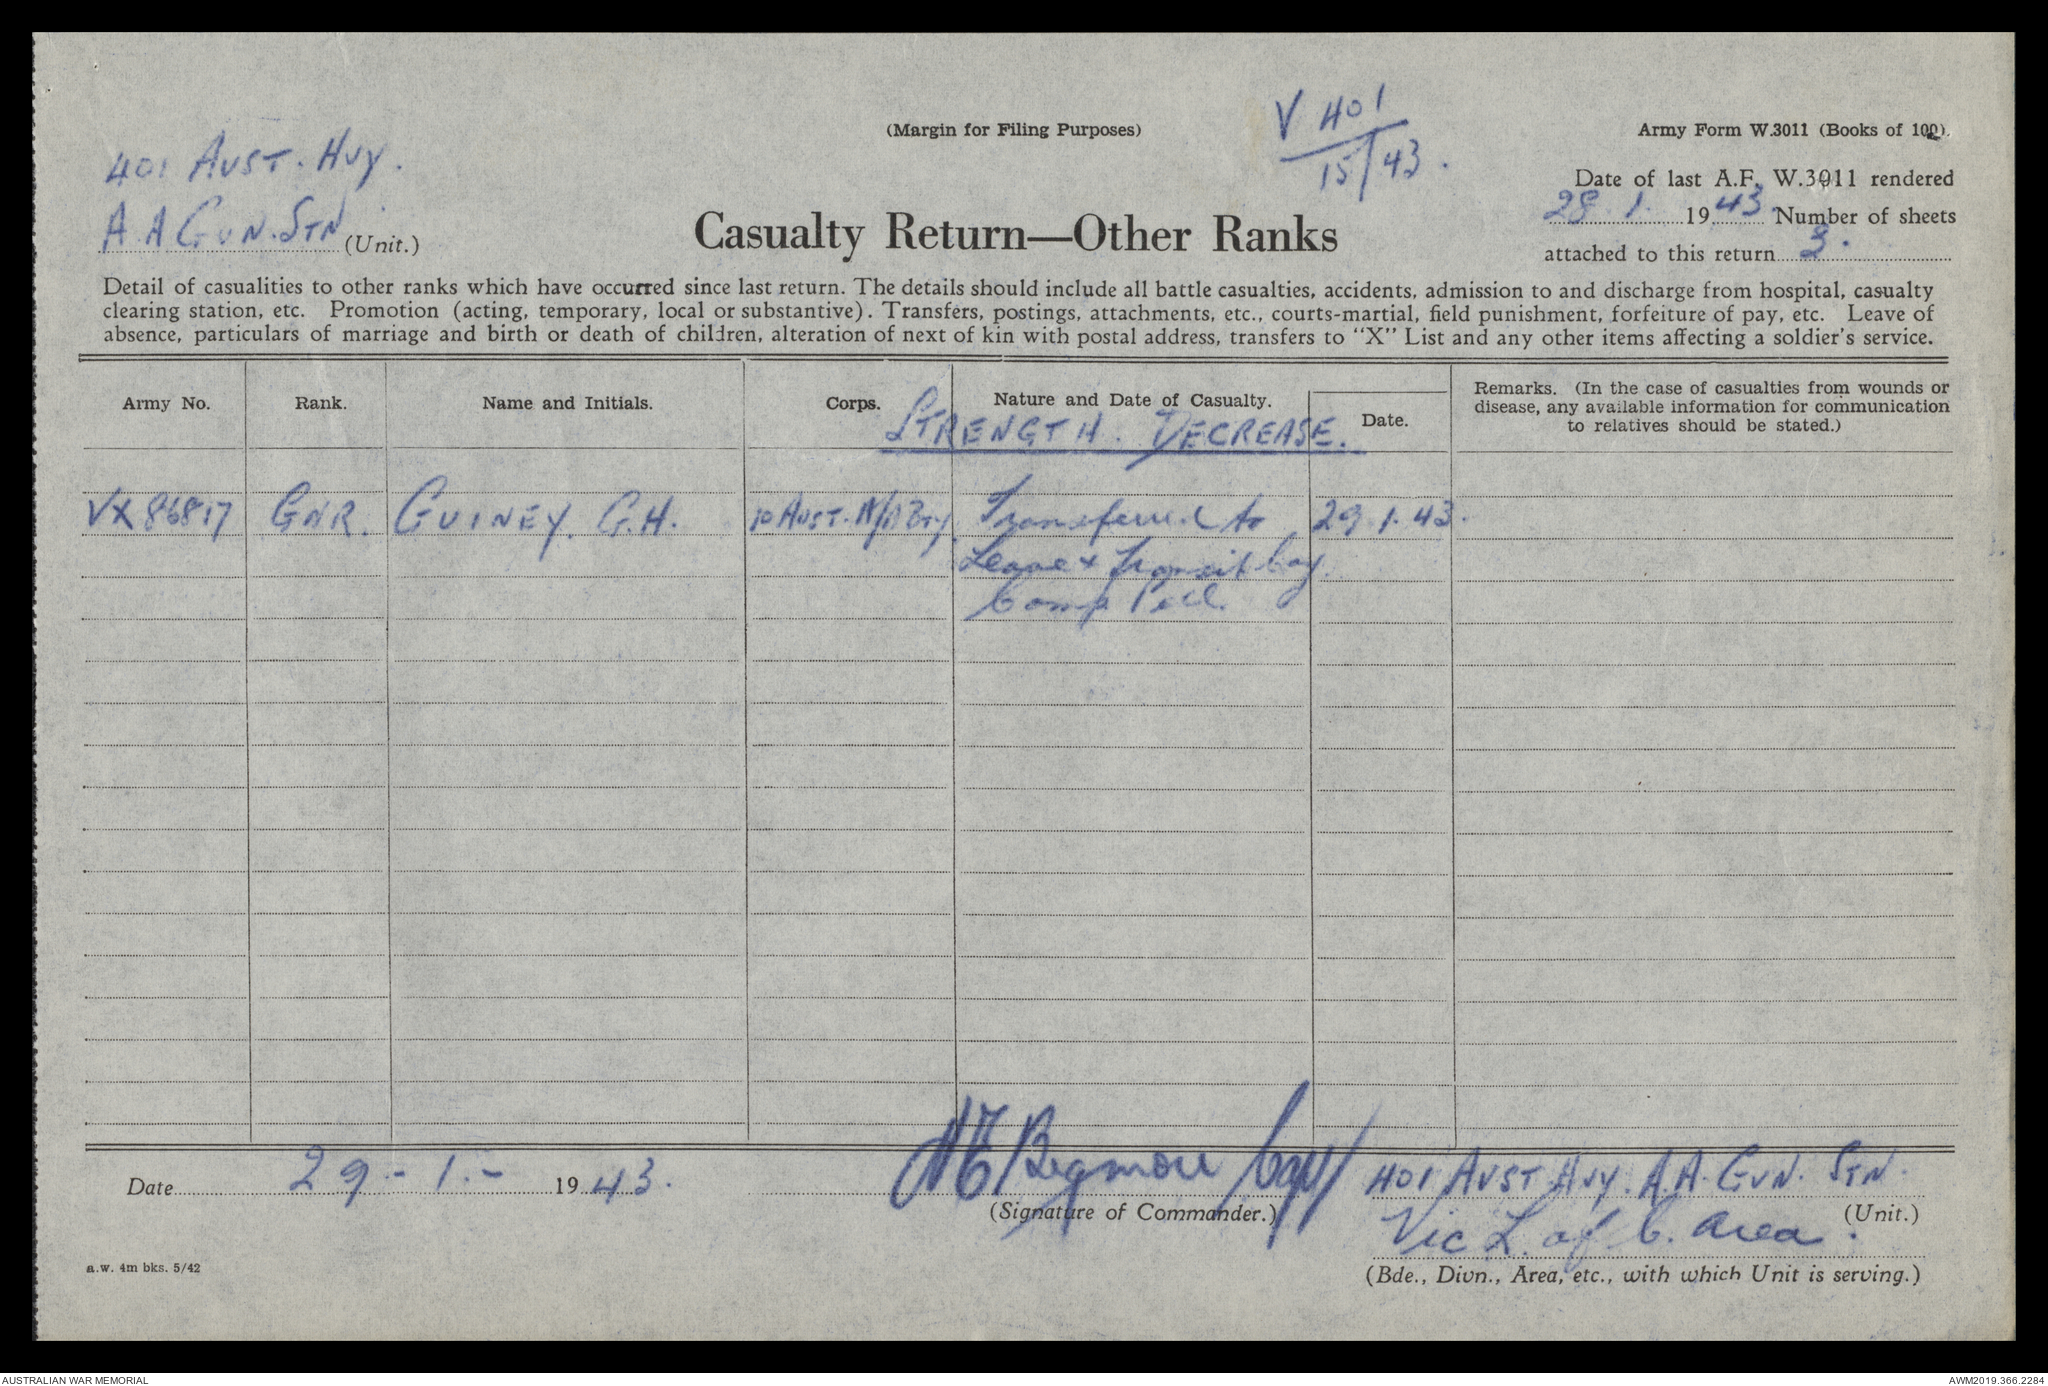 (Margin for Filing Purposes)
V 401
15/43.
Army Form W.3011 (Books of 100).
401 AUST. HVY.
A A GUN. STN (Unit.)
Casualty Return—Other Ranks
Date of last A.F. W.3011 rendered
28. 1. 1943. Number of sheets
attached to this return 3.
Detail of casualities to other ranks which have occurred since last return. The details should include all battle casualties, accidents, admission to and discharge from hospital, casualty
clearing station, etc. Promotion (acting, temporary, local or substantive). Transfers, postings, attachments, etc., courts-martial, field punishment, forfeiture of pay, etc. Leave of
absence, particulars of marriage and birth or death of children, alteration of next of kin with postal address, transfers to "X" List and any other items affecting a soldier's service.
Army No. Rank. Name and Initials. Corps. Nature and Date of Casualty. Date. Remarks. (In the case of casualties from wounds or
disease, any available information for communication
to relatives should be stated.)
STRENGTH. DECREASE.
VX86817 GNR. GUINEY. G.H. 10 AUST. A/A BTY. Transferred to 29.1.43.
Leave & Transit Coy.
Camp Pell.
Date 29-1.- 1943. (Signature of Commander.)
401 AUST. HVY. A.A. GUN. STN.
(Unit.)
Vic L. of C. Area.
(Bde., Divn., Area, etc., with which Unit is serving.)
a.w. 4m bks. 5/42
AUSTRALIAN WAR MEMORIAL
AWM2019.366.2284